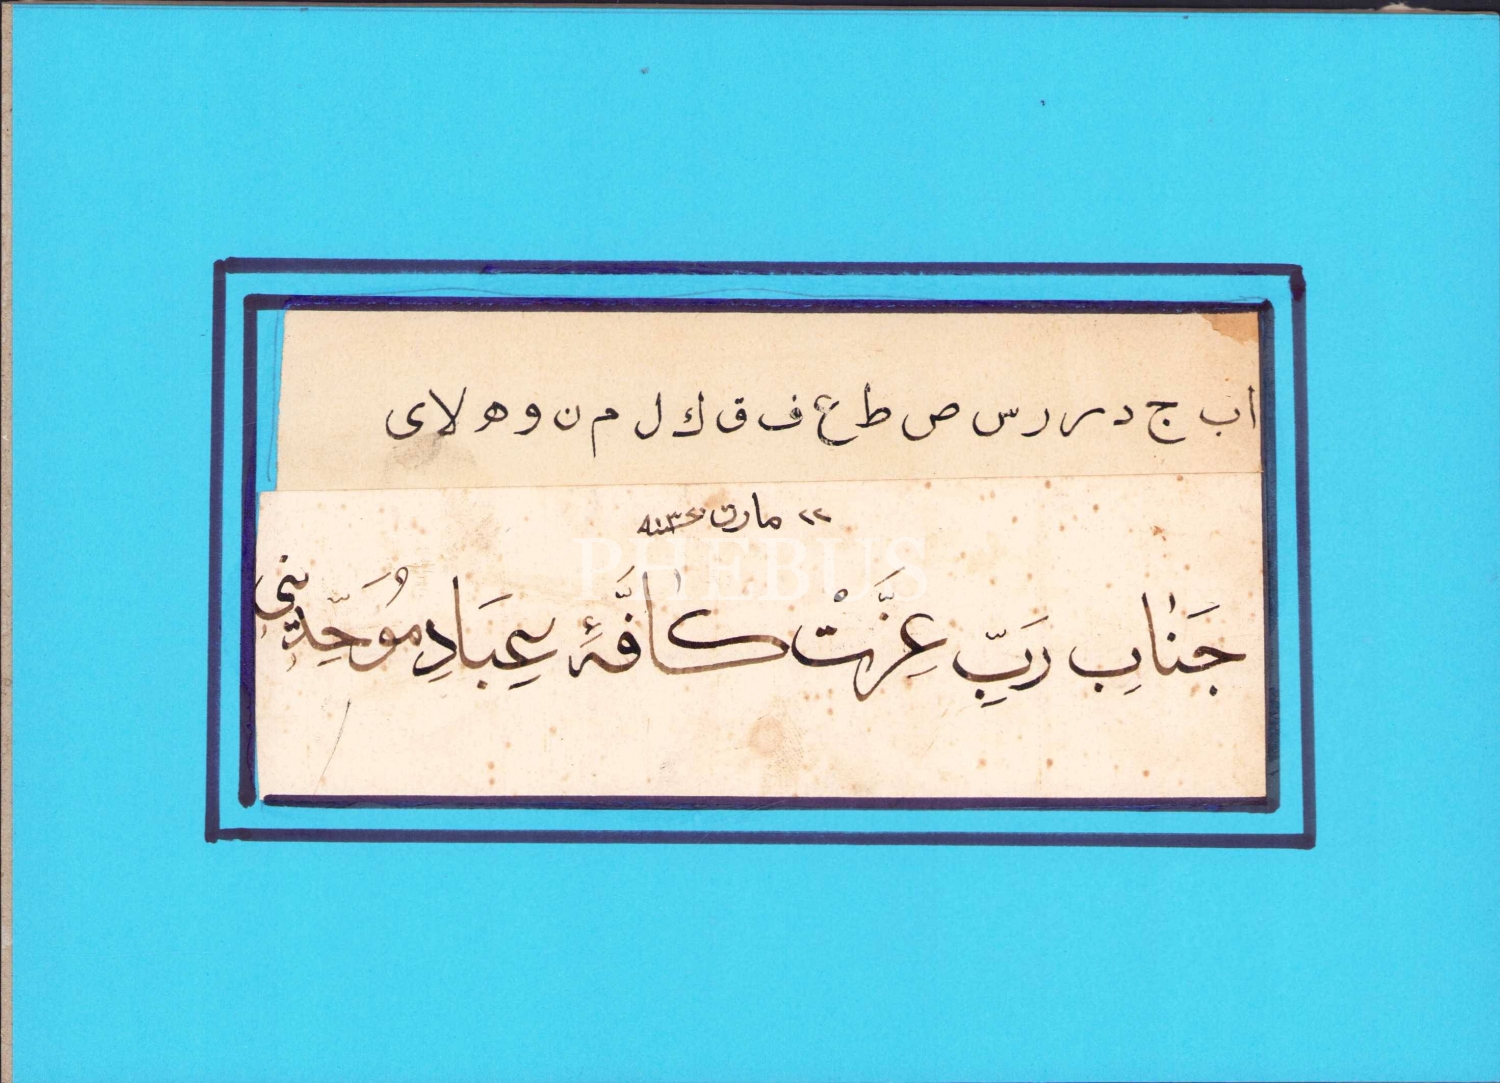 ا ب ج د ر ر س ص ط ع ف ق ك ل م ن و ه لا ى
٢٢ مارت
PHEBUS
جَنَابِ رَبِّ عِزَّتْ كَافَّهٔ عِبَادِ مُوَحِّدِينِى